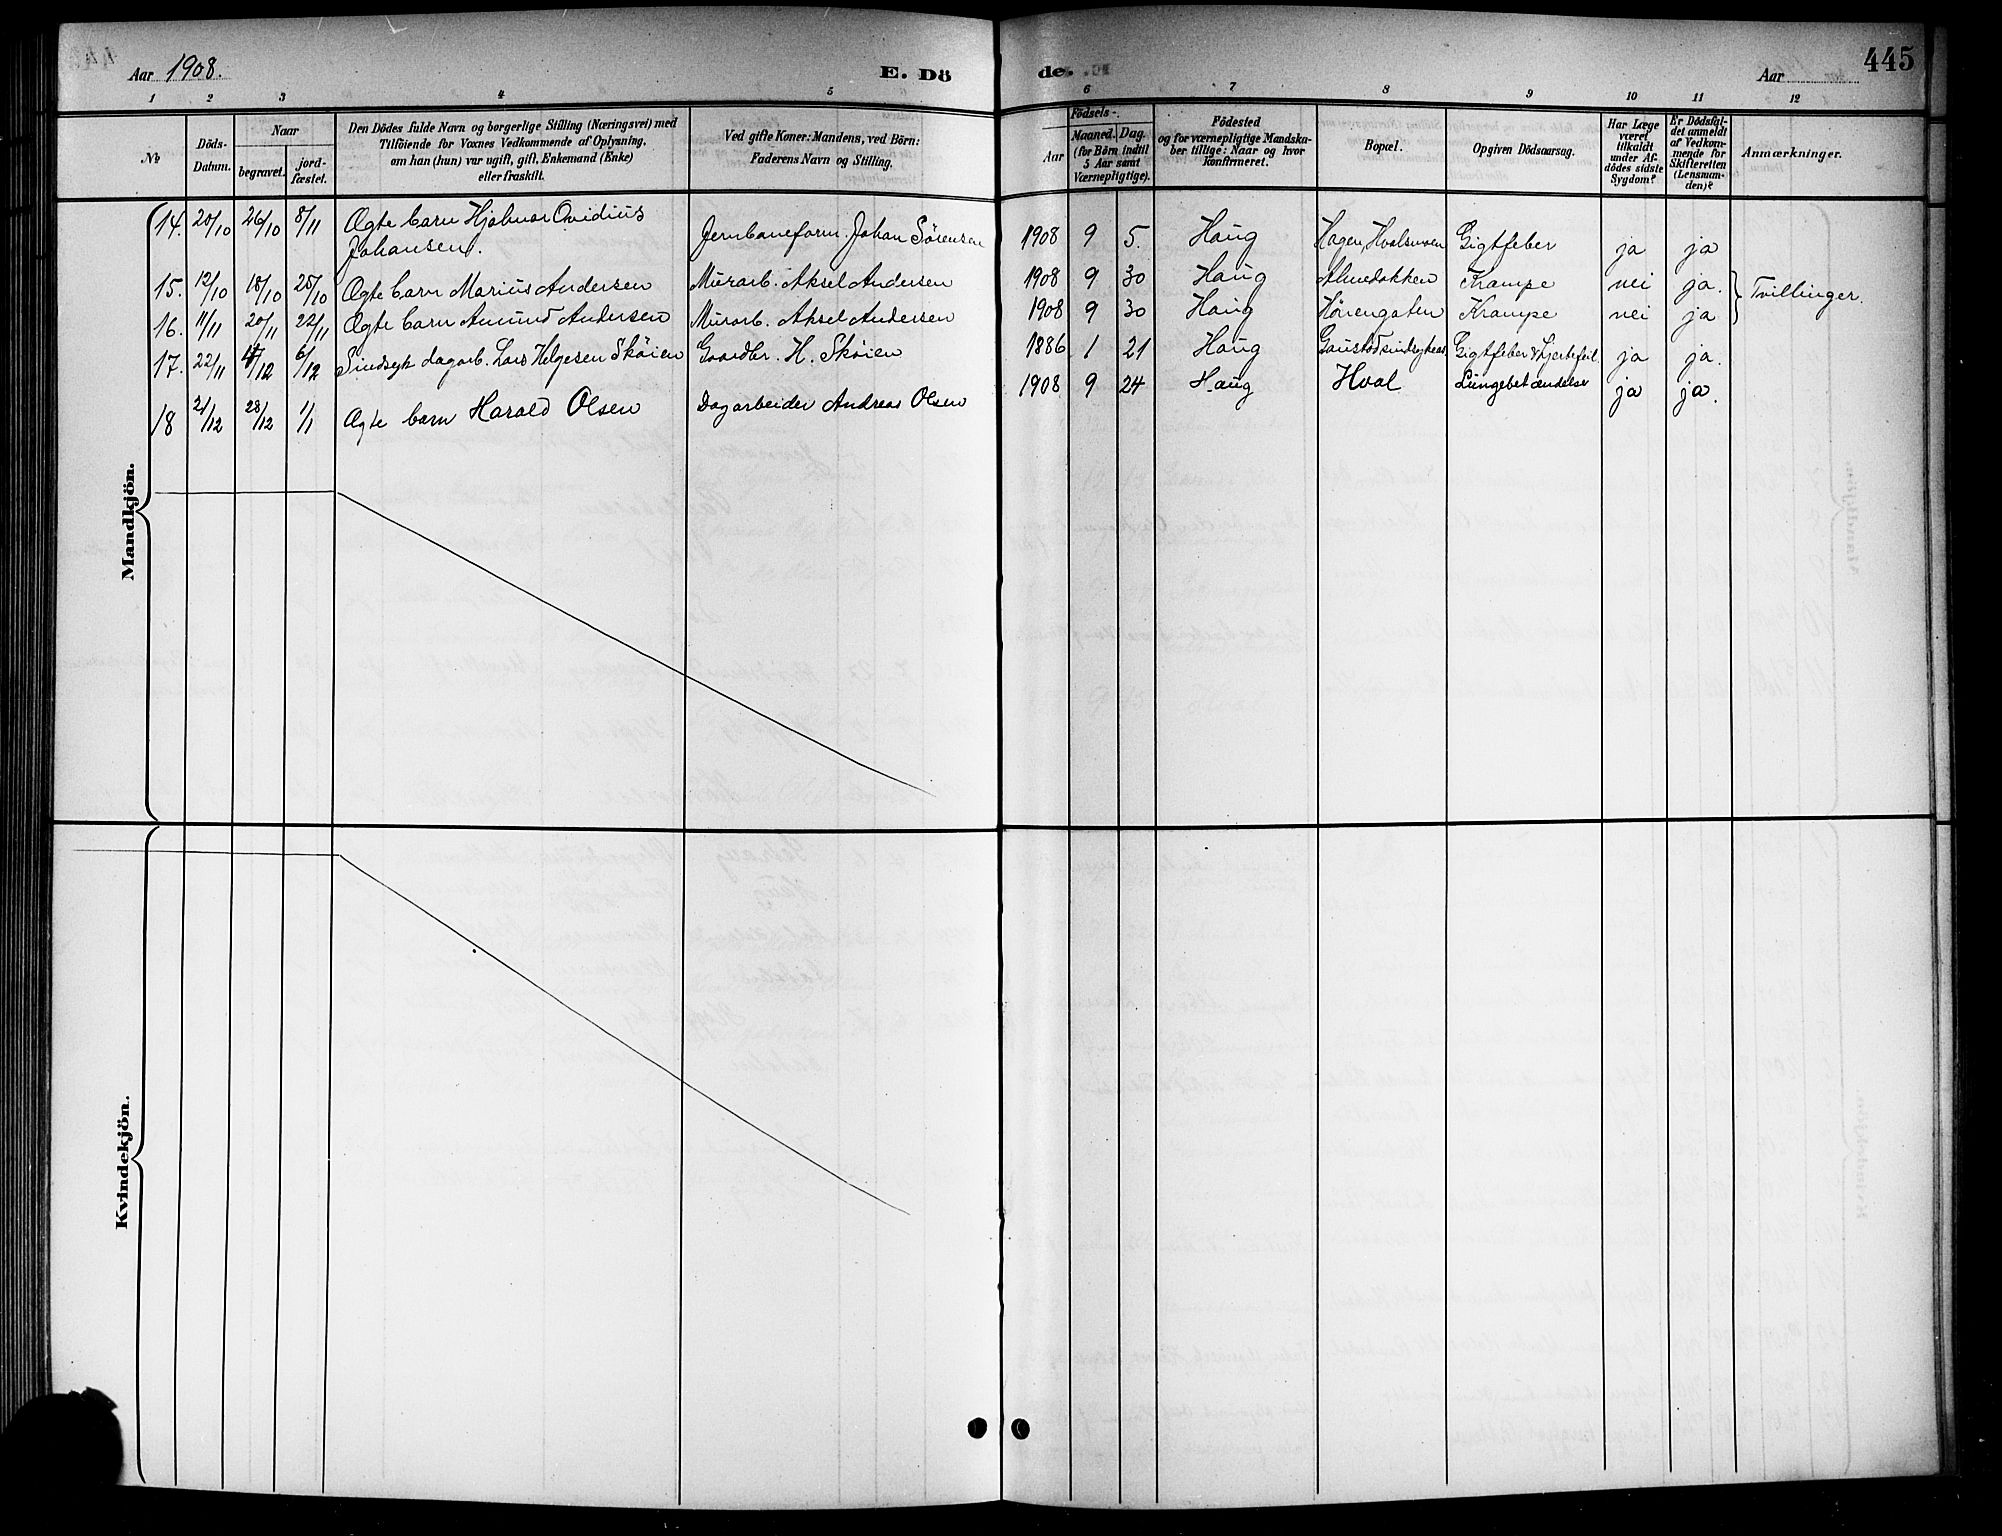 Aar 1908.
E. Dö
de.
Aar
445
1 2 3 4 5 6 7 8 9 10 11 12
№
Döds-
Datum.
Naar
begravet.
jord-
fæstet.
Den Dödes fulde Navn og borgerlige Stilling (Næringsvei) med
Tilföiende for Voxnes Vedkommende af Oplysning,
om han (hun) var ugift, gift, Enkemand (Enke)
eller fraskilt.
Ved gifte Koner: Mandens, ved Börn:
Faderens Navn og Stilling.
Födsels-
Aar
Maaned. Dag.
(for Börn indtil
5 Aar samt
Værnepligtige).
Födested
og for værnepligtige Mandska-
ber tillige: Naar og hvor
konfirmeret.
Bopæl.
Opgiven Dödsaarsag.
Har Læge
været
tilkaldt
under Af-
dödes sidste
Sygdom?
Er Dödsfal-
det anmeldt
af Vedkom-
mende for
Skifteretten
(Lensman-
den)?
Anmærkninger.
Mandkjön.
14. 20/10 26/10 8/11 Ægte barn Hjalmar Ovidius
Johansen. Jernbaneform. Johan Sörensen 1908 9 5. Haug Hagen, Hvalsmoen Gigtfeber ja ja
15. 12/10 18/10 25/10 Ægte barn Marius Andersen Murarb. Aksel Andersen 1908 9 30 Haug Almebakken Krampe nei ja. Tvillinger.
16. 11/11 20/11 22/11 Ægte barn Amund Andersen Murarb. Aksel Andersen 1908 9 30 Haug Hönengaten Krampe nei ja
17. 22/11 /12 6/12 Sindsyk dagarb. Lars Helgesen Skøien Gaardbr. H. Skøien 1886 1 21 Haug Gaustad sindsykeas. Gigtfeber & hjertefeil ja ja.
18 21/12 28/12 1/1 Ægte barn Harald Olsen Dagarbeider Andreas Olsen 1908 9 24 Haug Hval Lungebetændelse ja ja.
Kvindekjön.